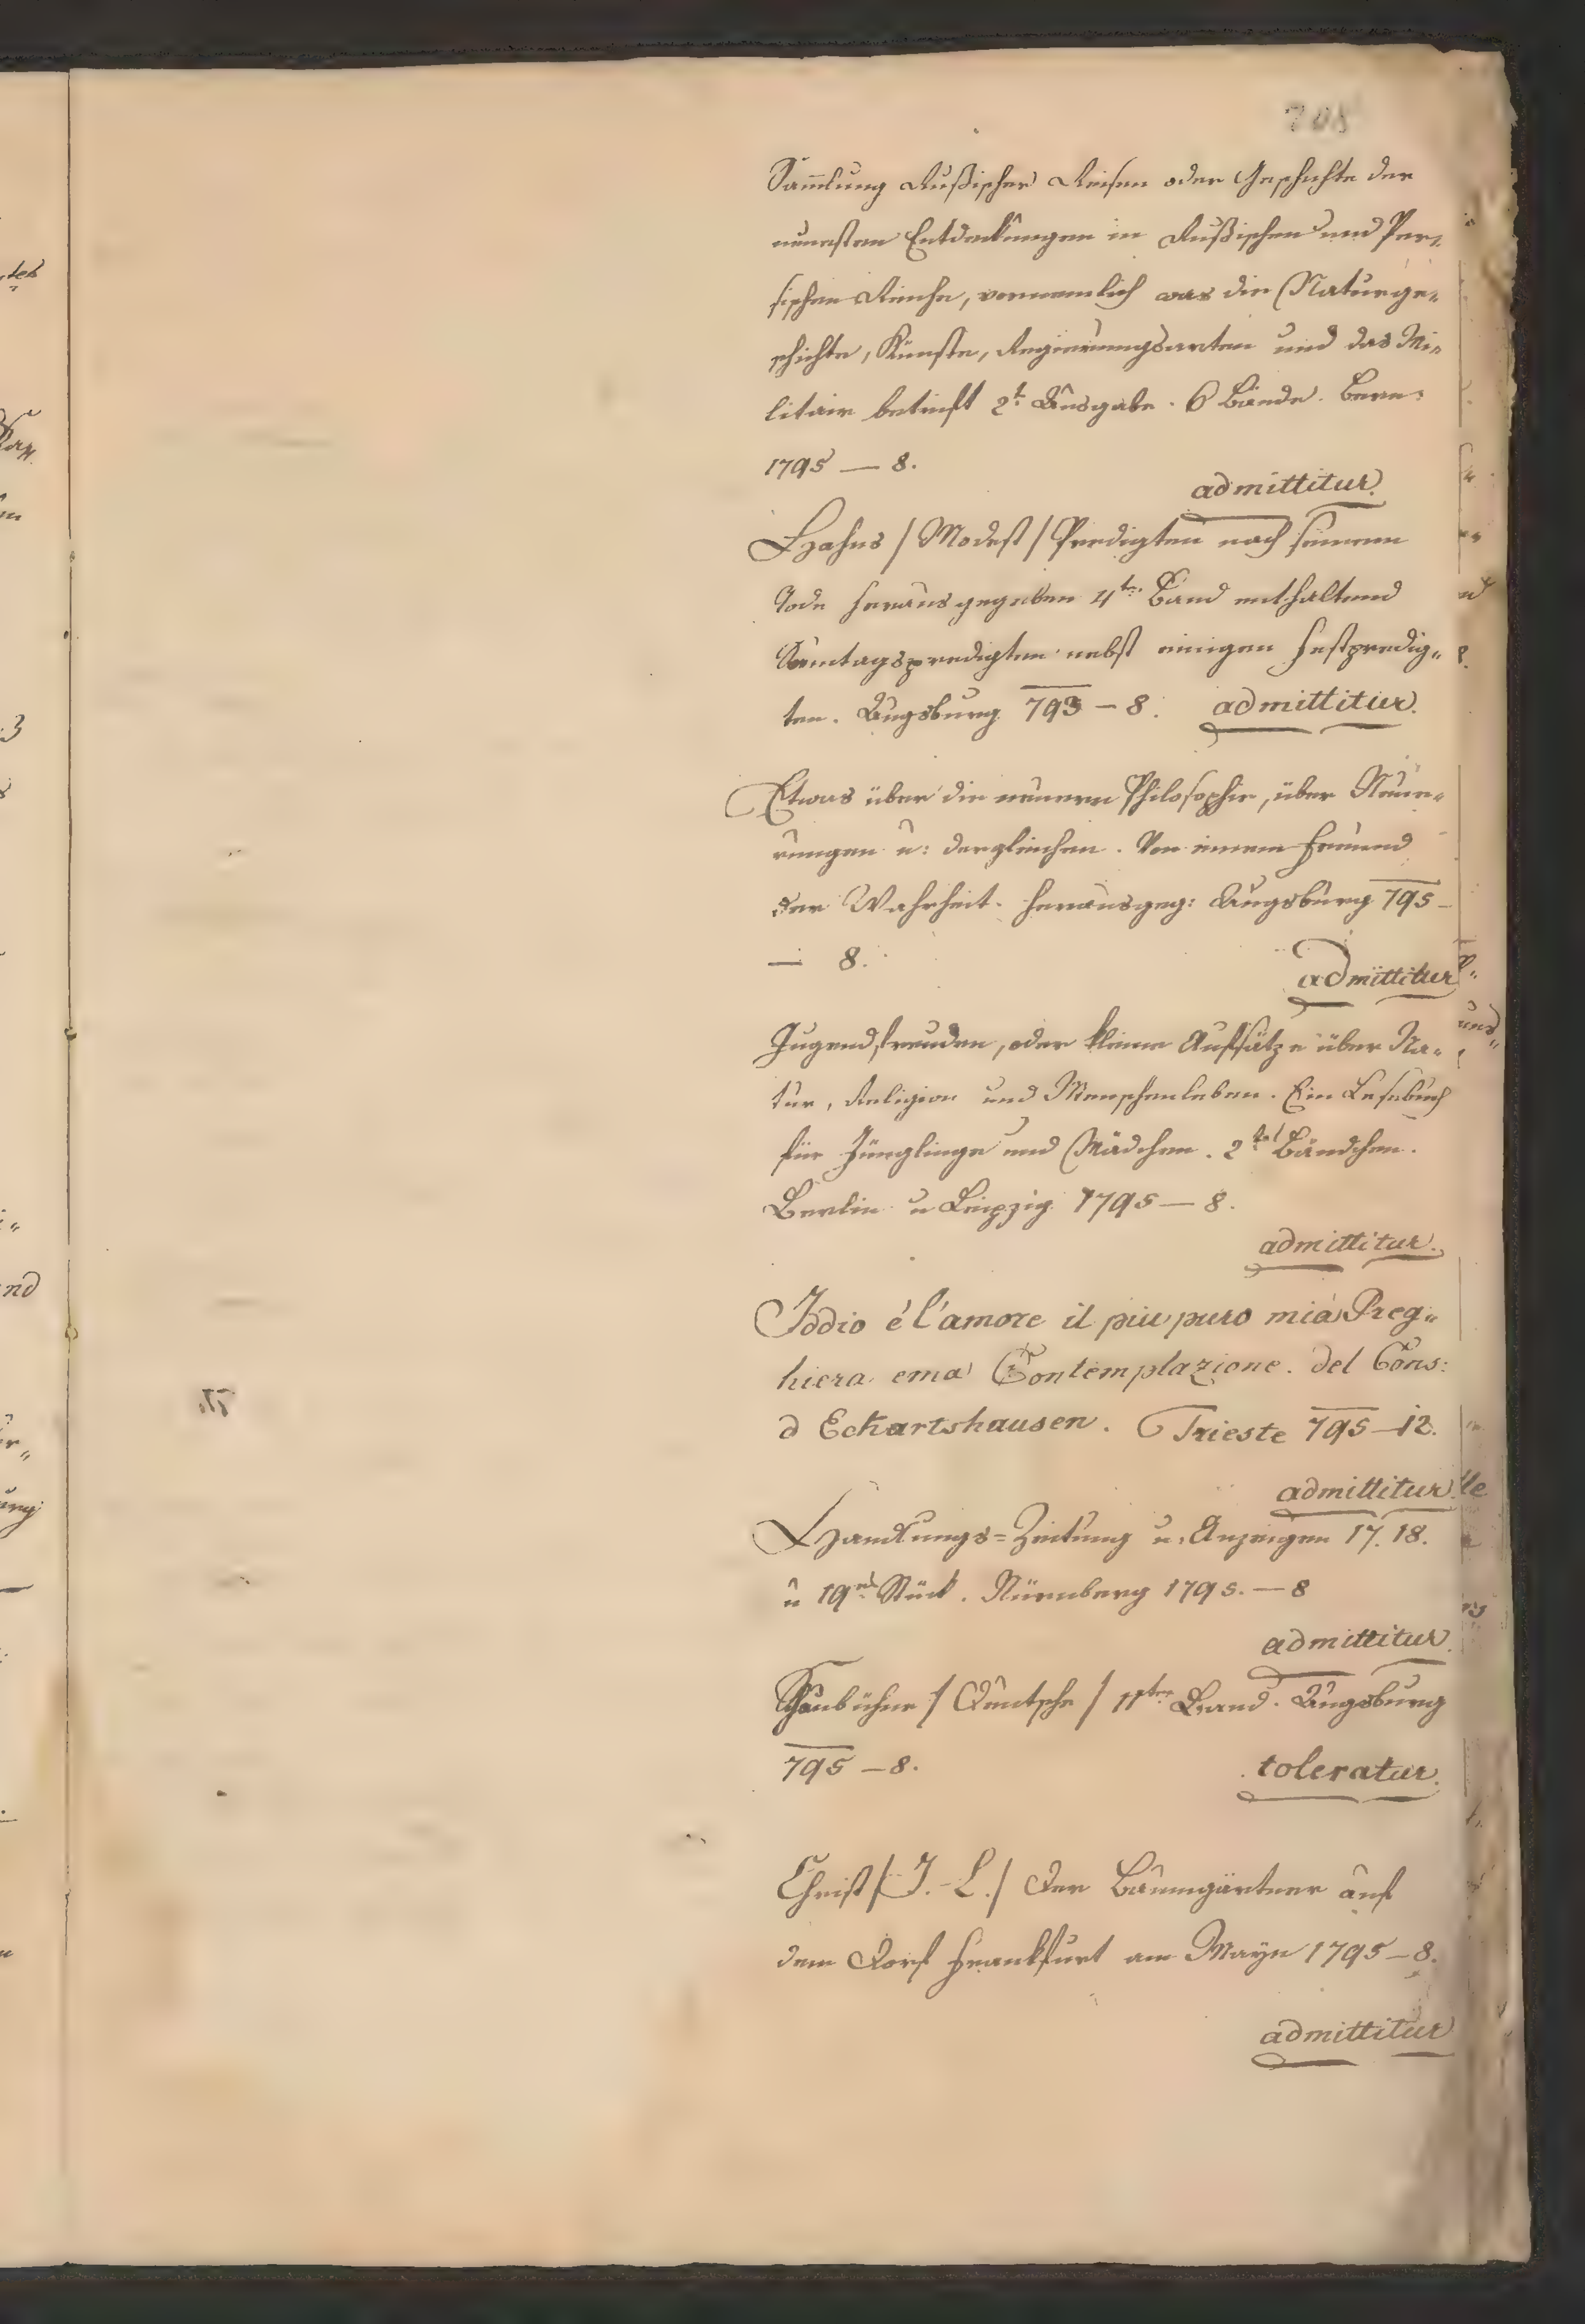 708
Sam̅lung Rußischer Reisen oder Geschichte der
neuesten Entdeckungen in Rußischen und Per„
sischen Reiche, vornemlich was die Naturge„
schichte, Künste, Regierungsarten und das Mi„
litair betrieft 2t. Ausgabe. 6 Bände. Bern.
1795 — 8.
admittitur.
Hahns / Modest / Predigten nach seinem
Tode herausgegeben 4ter Band enthaltend
Sonntagspredigten nebst einigen Festpredig„
ten. Augsburg 793 – 8. admittitur.
Etwas über die neuere Philosophie, über Neue„
rungen u: dergleichen. Von einem Freund
der Wahrheit. herausgeg: Augsburg 795 –
— 8.
admittitur
Jugendfreuden, oder kleine Aufsätze über Na„
tur, Religion und Menschenleben. Ein Lesebuch
für Jünglinge und Mädchen. 2tes Bändchen.
Berlin u Leipzig 1795 — 8.
admittitur.
Iddio é l'amore il piu puro mia Preg„
hiera ema Contemplazione. del Cons:
d Eckartshausen. Trieste 795 – 12.
admittitur.
Handlungs=Zeitung u. Anzeigen 17. 18.
u 19tes Stück. Nürnberg 1795. — 8
admittitur.
Schaubühne / Deutsche / 11ter Band. Augsburg
795 – 8. toleratur.
Christ / J. L. / Der Baumgärtner auf
dem Dorf Frankfurt am Mayn 1795 – 8.
admittitur